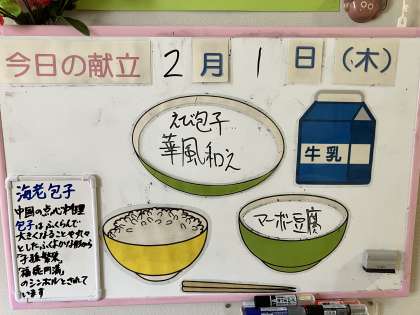 今日の献立 2月1日(木)
えび包子
華風和え
牛乳
マーボー豆腐
海老包子
中国の点心料理
包子はふくらんで
大きくなることや丸々
としたふくよかな形から
"子孫繁栄"
"福徳円満"
のシンボルとされて
います